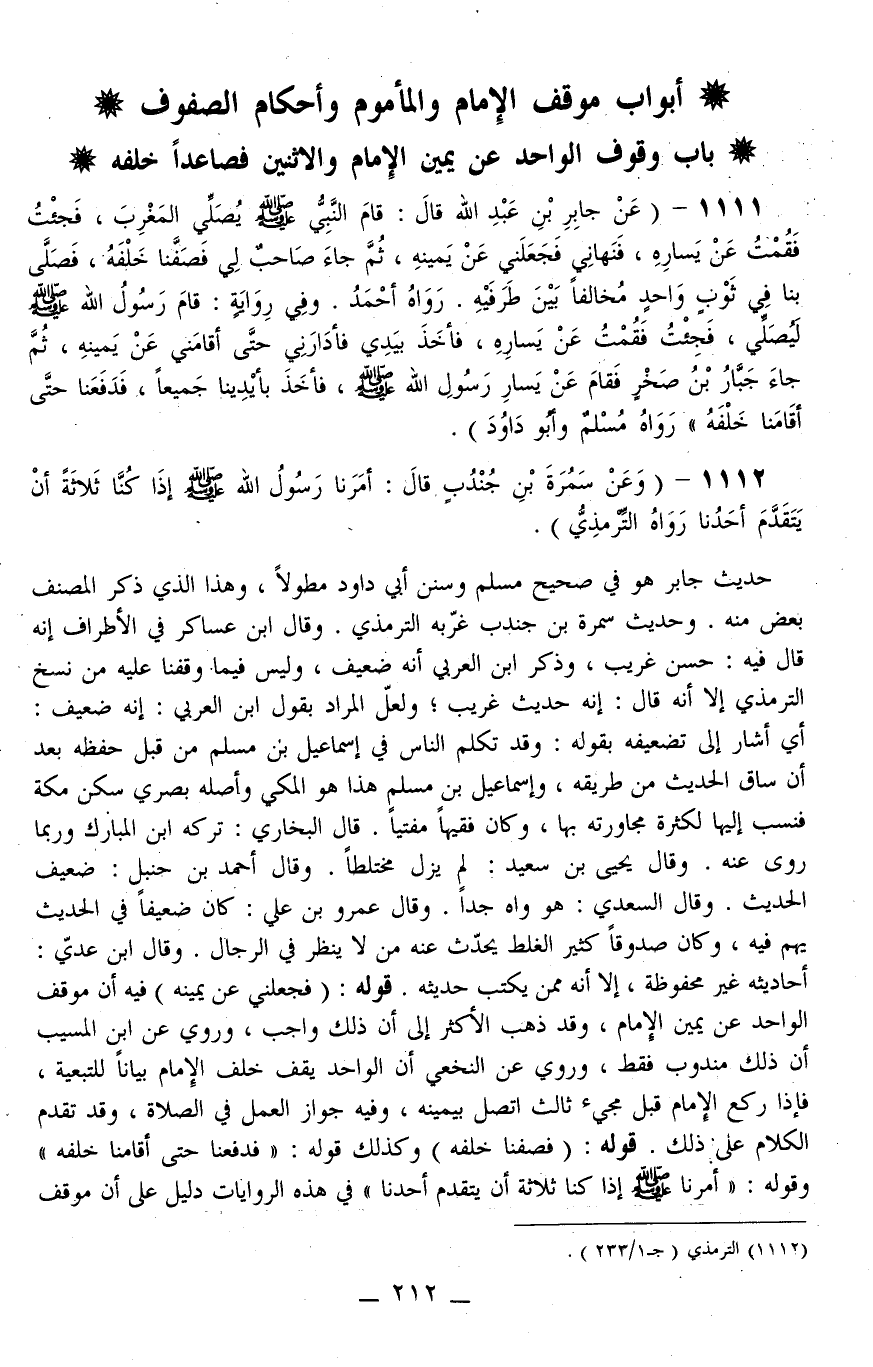 أبواب موقف الإمام والمأموم وأحكام الصفوف
باب وقوف الواحد عن يمين الإمام والاثنين فصاعداً خلفه
١١١١ – ( عَنْ جابِرِ بْنِ عَبْدِ الله قالَ : قامَ النَّبِيُّ ﷺ يُصَلِّي المَغْرِبَ ، فَجِئْتُ
فَقُمْتُ عَنْ يَسارِهِ ، فَنَهانِي فَجَعَلَني عَنْ يَمينِهِ ، ثُمَّ جاءَ صَاحبٌ لِي فَصَفَّنا خَلْفَهُ ، فَصَلَّى
بنا فِي ثَوْبٍ وَاحدٍ مُخالفاً بَيْنَ طَرَفَيْهِ . رَوَاهُ أحْمَدُ . وفِي رِوَايَةٍ : قامَ رَسُولُ الله ﷺ
لَيُصَلِّي ، فَجِئْتُ فَقُمْتُ عَنْ يَسارِهِ ، فأخَذَ بيَدِي فأدَارَنِي حتَّى أقامَني عَنْ يَمينِهِ ، ثُمَّ
جاءَ جَبَّارُ بْنُ صَخْرٍ فَقامَ عَنْ يَسارِ رَسُولِ الله ﷺ ، فأخَذَ بأيْدِينا جَميعاً ، فَدَفَعَنا حتَّى
أقَامَنا خَلْفَهُ » رَوَاهُ مُسْلمٌ وأبُو دَاوُدَ ) .
١١١٢ – ( وَعَنْ سَمُرَةَ بْنِ جُنْدُبٍ قالَ : أمَرَنا رَسُولُ الله ﷺ إذَا كُنَّا ثَلاثَةً أنْ
يَتَقَدَّمَ أحَدُنا رَوَاهُ التِّرْمذِيُّ ) .
حديث جابر هو في صحيح مسلم وسنن أبي داود مطولاً ، وهذا الذي ذكر المصنف
بعض منه . وحديث سمرة بن جندب غرّبه الترمذي . وقال ابن عساكر في الأطراف إنه
قال فيه : حسن غريب ، وذكر ابن العربي أنه ضعيف ، وليس فيما وقفنا عليه من نسخ
الترمذي إلا أنه قال : إنه حديث غريب ؛ ولعلّ المراد بقول ابن العربي : إنه ضعيف :
أي أشار إلى تضعيفه بقوله : وقد تكلم الناس في إسماعيل بن مسلم من قبل حفظه بعد
أن ساق الحديث من طريقه ، وإسماعيل بن مسلم هذا هو المكي وأصله بصري سكن مكة
فنسب إليها لكثرة مجاورته بها ، وكان فقيهاً مفتياً . قال البخاري : تركه ابن المبارك وربما
روى عنه . وقال يحيى بن سعيد : لم يزل مختلطاً . وقال أحمد بن حنبل : ضعيف
الحديث . وقال السعدي : هو واه جداً . وقال عمرو بن علي : كان ضعيفاً في الحديث
يهم فيه ، وكان صدوقاً كثير الغلط يحدّث عنه من لا ينظر في الرجال . وقال ابن عديّ :
أحاديثه غير محفوظة ، إلا أنه ممن يكتب حديثه . قوله : ( فجعلني عن يمينه ) فيه أن موقف
الواحد عن يمين الإمام ، وقد ذهب الأكثر إلى أن ذلك واجب ، وروي عن ابن المسيب
أن ذلك مندوب فقط ، وروي عن النخعي أن الواحد يقف خلف الإمام بياناً للتبعية ،
فإذا ركع الإمام قبل مجيء ثالث اتصل بيمينه ، وفيه جواز العمل في الصلاة ، وقد تقدم
الكلام على ذلك . قوله : ( فصفنا خلفه ) وكذلك قوله : « فدفعنا حتى أقامنا خلفه »
وقوله : « أمرنا ﷺ إذا كنا ثلاثة أن يتقدم أحدنا » في هذه الروايات دليل على أن موقف
(١١١٢) الترمذي ( جـ١/٢٣٣ ) .
– ٢١٢ –